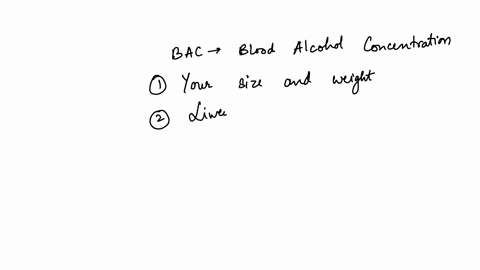 BAC → Blood Alcohol Concentration
① Your size and weight
② Live